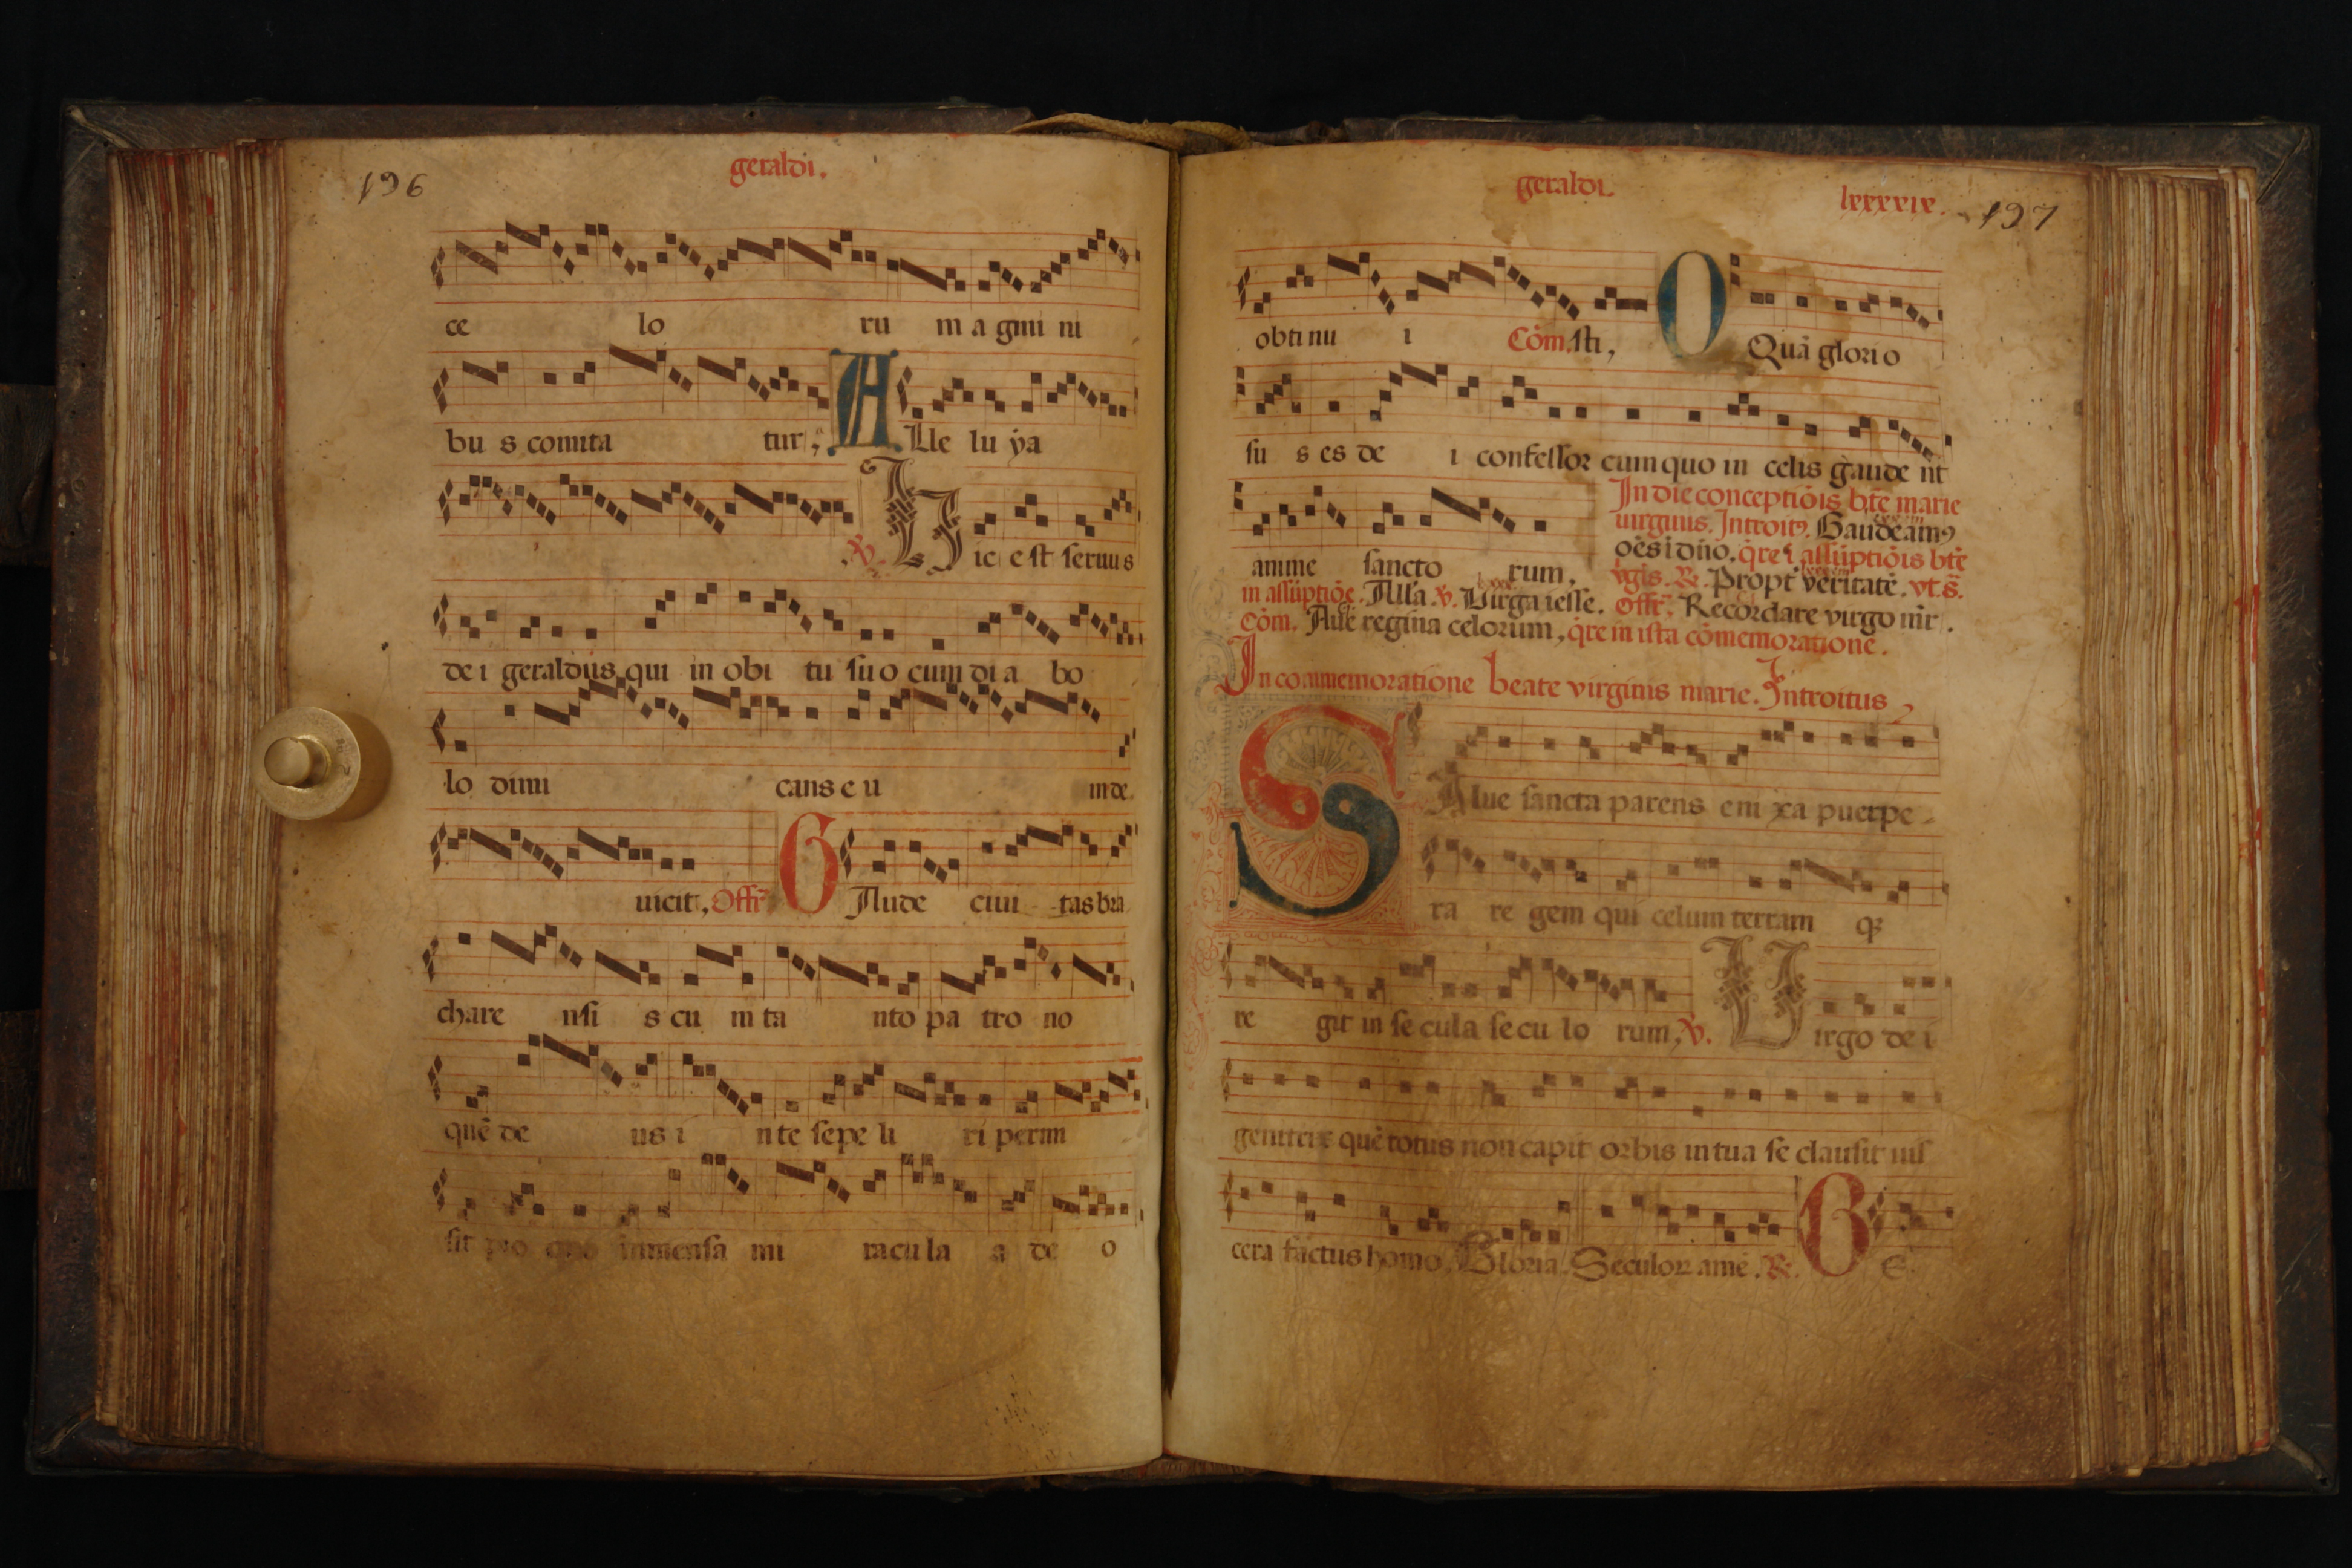 196
geraldi.
ce lo ru m a gmi ni
bu s comita tur, A Lle lu ya
℣. H ic e st seruus
de i geraldus qui in obi tu su o cum di a bo
lo dimi cans e u inde
uicit, Offr̄ G Aude ciui tas bra
chare nsi s cu m ta nto pa tro no
quē de us i n te sepe li ri permi
sit pro quo inmensa mi racu la a de o
geraldi.
lxxxxix. 197
obti nu i Cōm. sti, O Quā glori o
su s es de i confessor cum quo in celis gaude nt
In die conceptiōis btē marie
uirginis. Introitꝰ. Gaudeamꝰ
anime sancto rum, oēs i dn̄o. q̄re ī assūptiōis btē
vgīs. ℟. Propt̄ veritatē. vt. s̄.
in assūptiōe. Alla. ℣. Virga iesse. Offr̄. Recordare virgo mr̄.
Cōm. Aue regina celorum, q̄re in ista cōmemoratione.
In commemoratione beate virginis marie. Introitus,
S Alue sancta parens eni xa puerpe-
ra re gem qui celum terram qꝫ
re git in se cula se cu lo rum, ℣. V irgo de i
genitrix quē totus non capit orbis in tua se clausit uis
cera factus homo. Gloria. Seculoꝝ amē. ℟. B E.